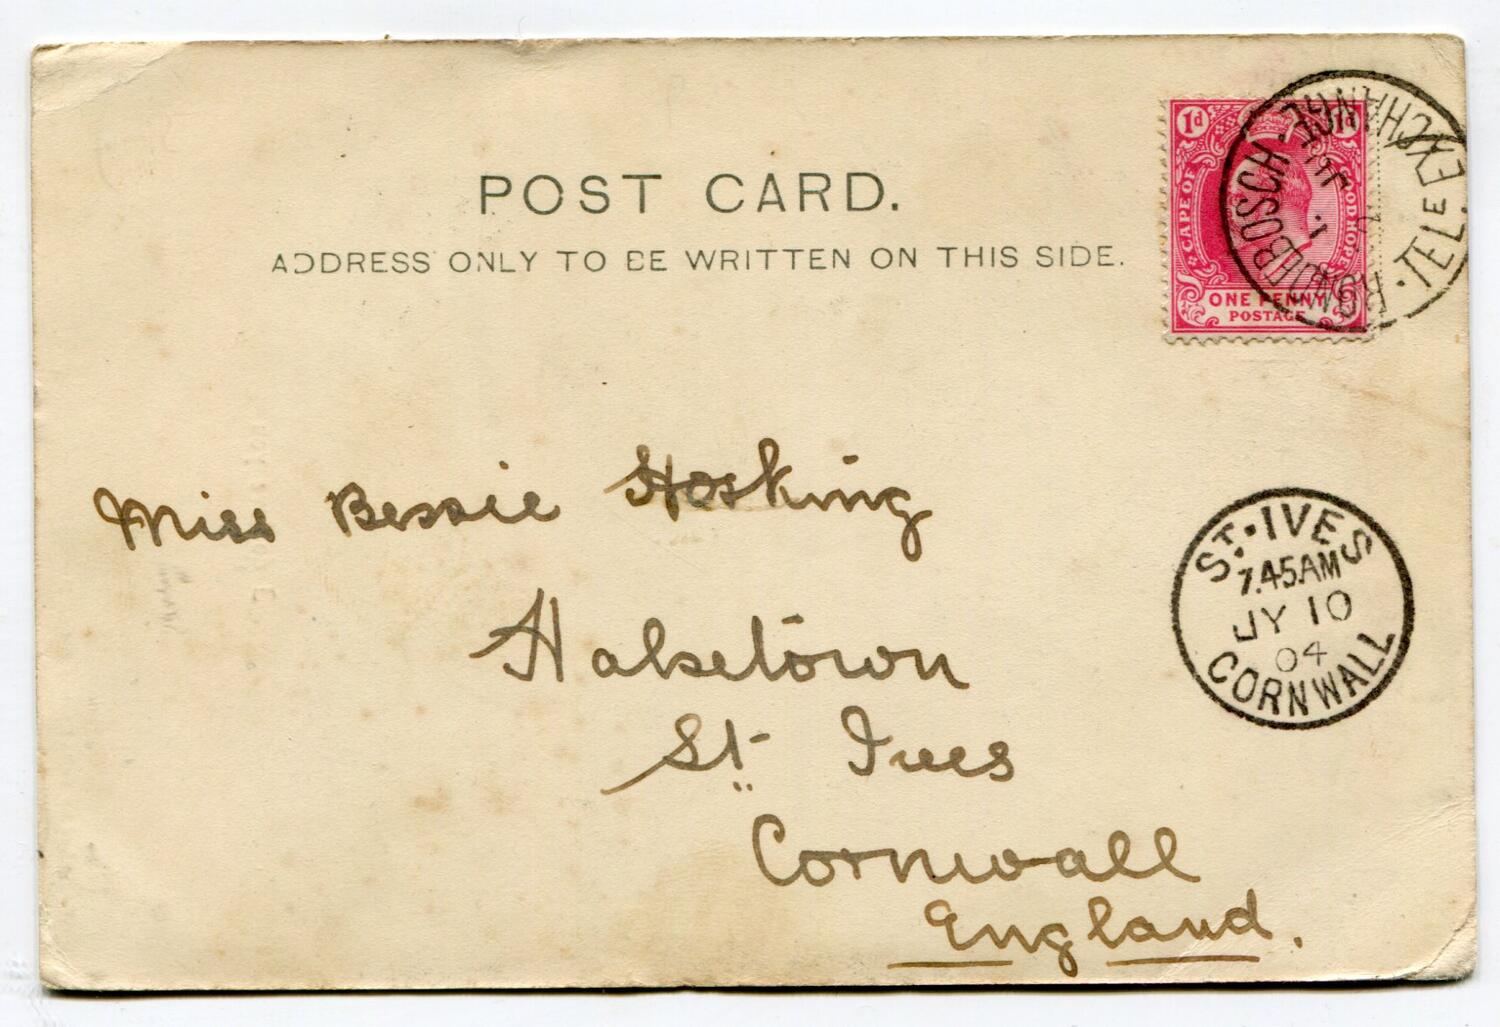 POST CARD.
ADDRESS ONLY TO BE WRITTEN ON THIS SIDE.
1d 1d
CAPE OF GOOD HOPE
ONE PENNY
POSTAGE
RONDEBOSCH · TELE. EXCHANGE ·
Miss Bessie Hosking
Halsetown
St. Ives
Cornwall
England.
ST. IVES
7.45AM
JY 10
04
CORNWALL